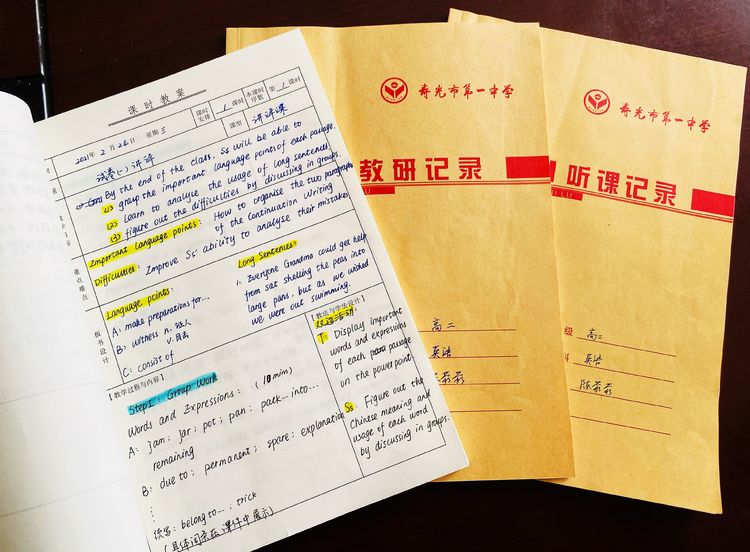 课时教案
课时安排 1 课时 本课时序数 第 1 课时
2021年 2月 26日 星期 三 课型 讲评课
试卷(一)讲评
Goal By the end of the class, Ss will be able to
(1) grasp the important language points of each passage.
(2) learn to analyse the usage of long sentences.
(3) figure out the difficulties by discussing in groups.
Important language points: How to organise the two paragraphs
of the Continuation Writing
重点难点
Difficulties: Improve Ss' ability to analyse their mistakes
板书设计
Language points:
A: make preparations for...
B: witness n. 证人
v. 目击
C: consist of
Long Sentences:
1. Everyone Grandma could get help
from sat shelling the peas into
large pans, but as we wished
we were out swimming.
【教学过程与内容】
Step1: Group Work (10 mins)
Words and Expressions:
A: jam; jar; pot; pan; pack... into...
remaining
B: due to; permanent; spare; explanation
⋮
续写: belong to...; trick
(具体词条在课件中展示)
【教法与学法设计】
双边活动:
T: Display important
words and expressions
of each passage
on the powerpoint.
Ss: Figure out the
Chinese meaning and
usage of each word
by discussing in groups.
寿光市第一中学
教研记录
高二
英语
陈蒜蒜
寿光市第一中学
听课记录
级 高二
科 英语